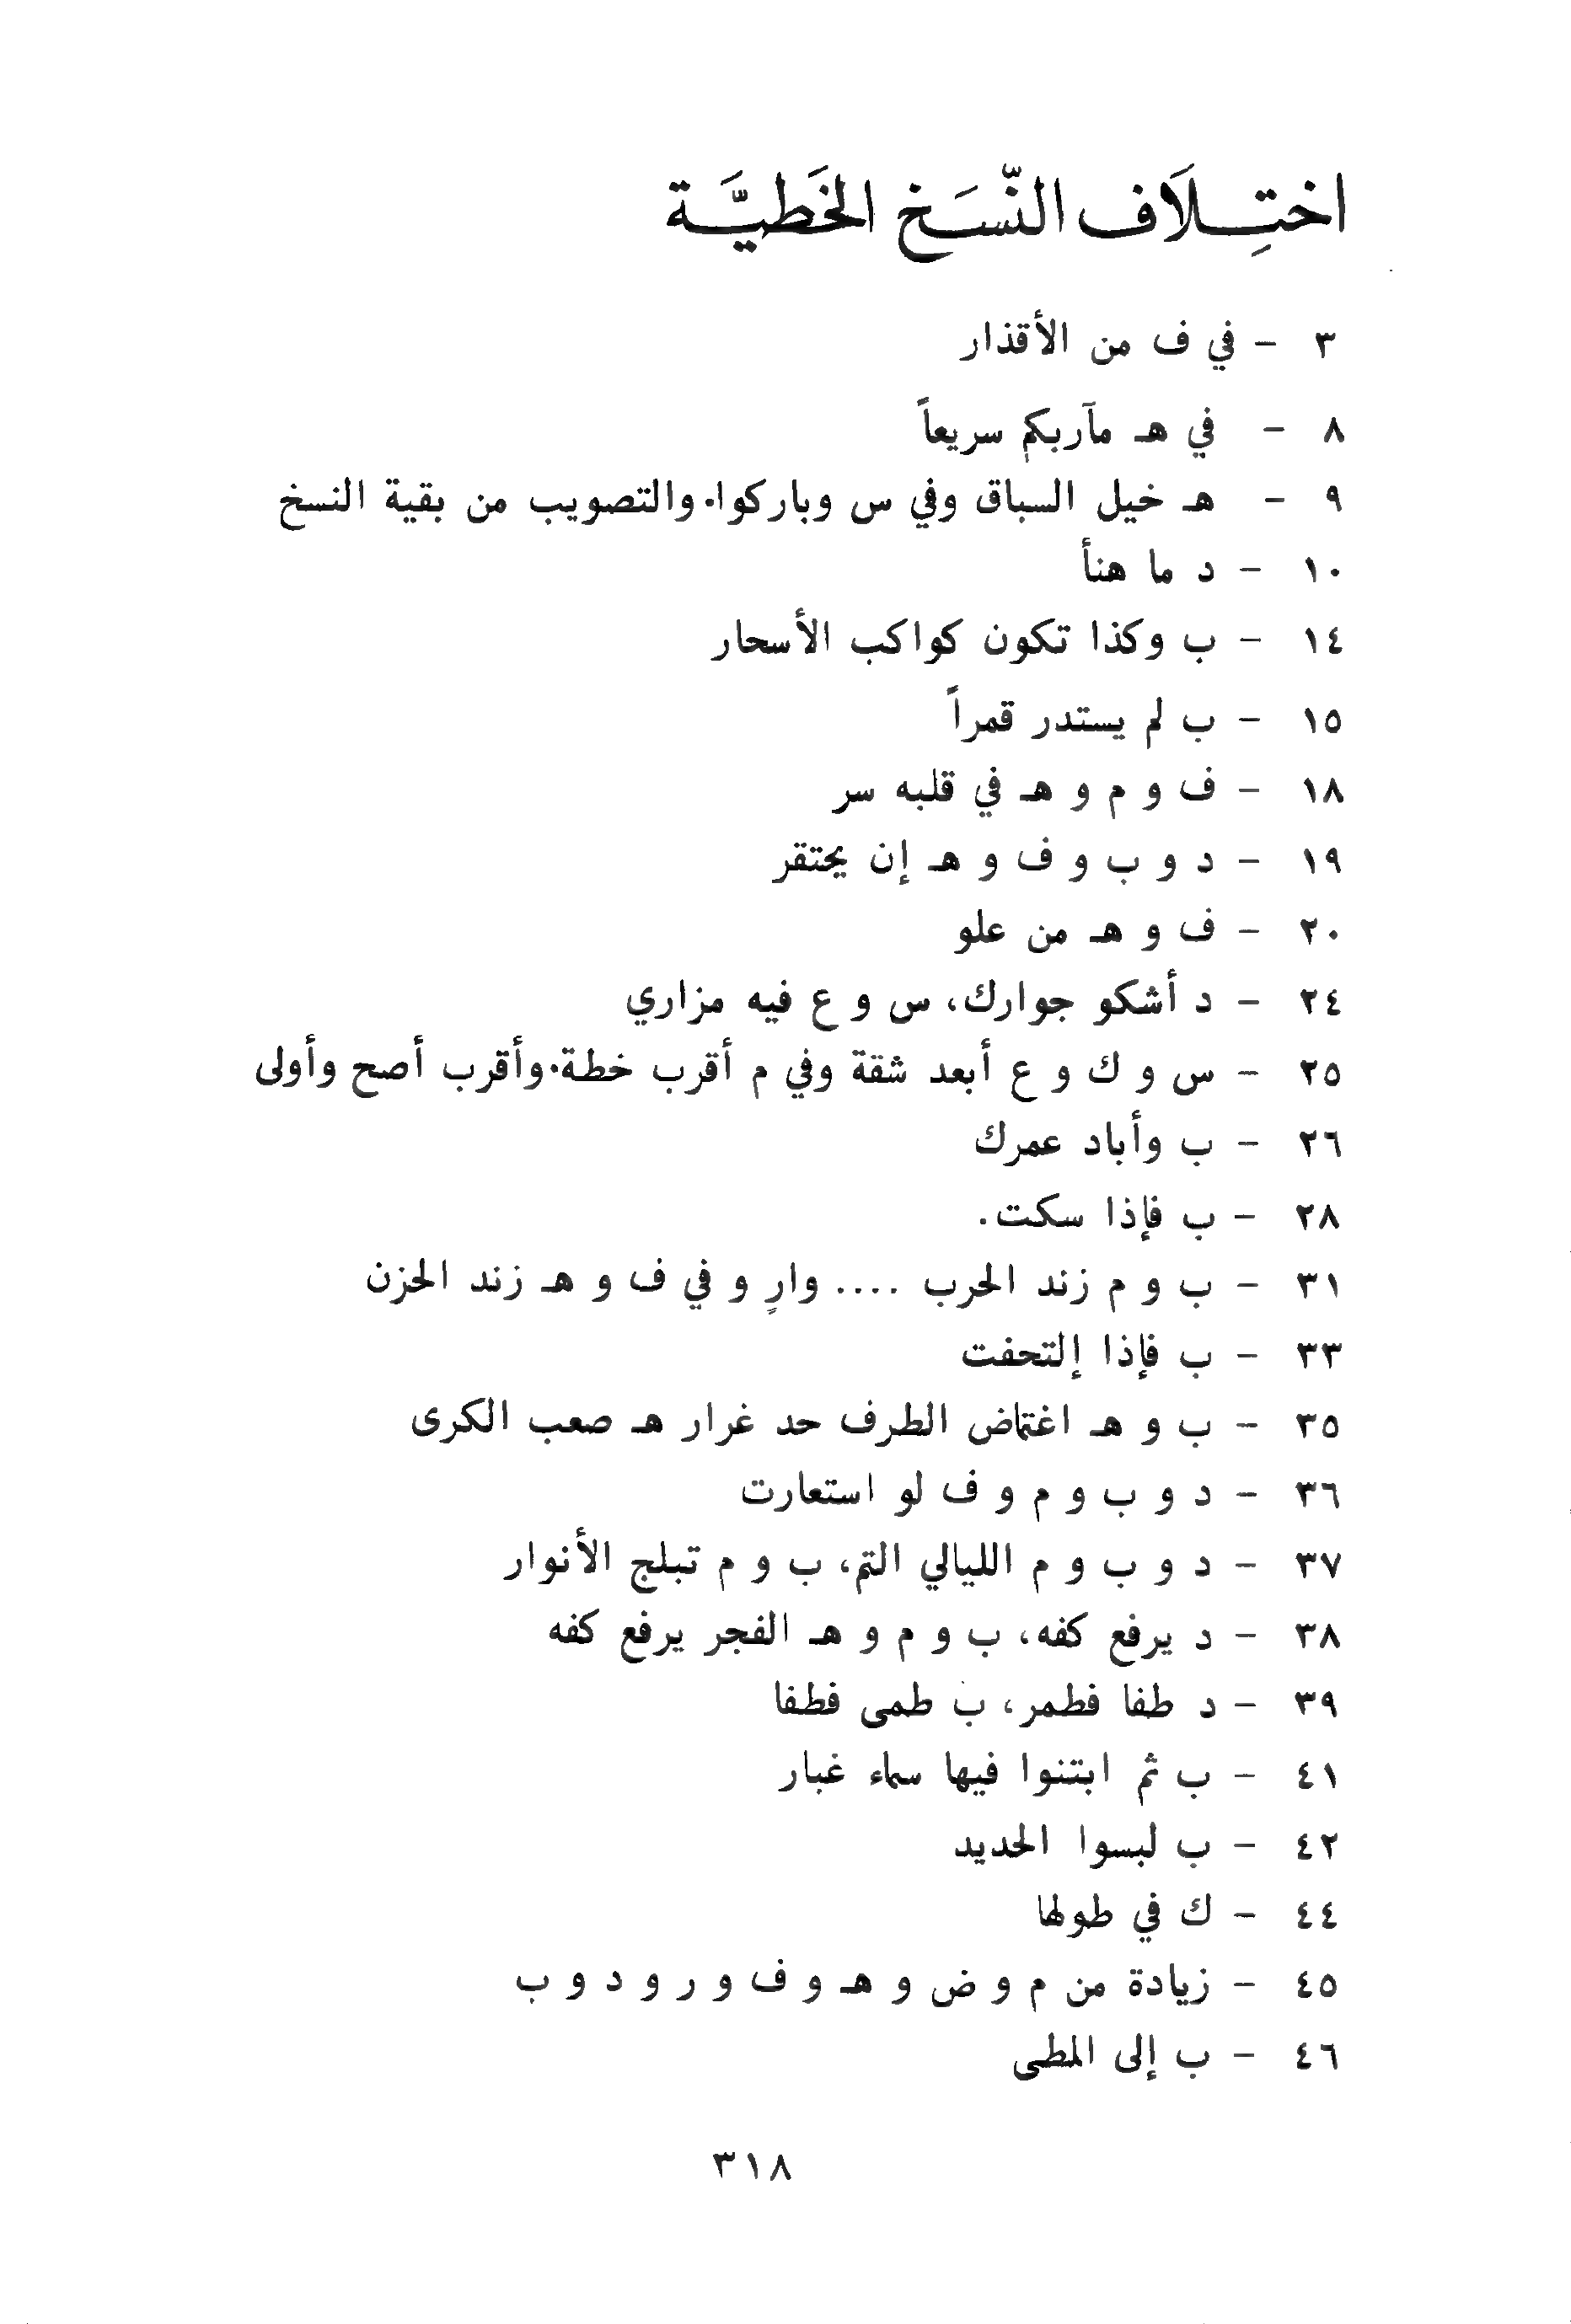 اختِلَاف النّسَخ الخَطيَّة
٣ - في ف من الأقذار
٨ - في هـ مآربكم سريعاً
٩ - هـ خيل السباق وفي س وباركوا. والتصويب من بقية النسخ
١٠ - د ما هنأ
١٤ - ب وكذا تكون كواكب الأسحار
١٥ - ب لم يستدر قمراً
١٨ - ف و م و هـ في قلبه سر
١٩ - د و ب و ف و هـ إن يحتقر
٢٠ - ف و هـ من علو
٢٤ - د أشكو جوارك، س و ع فيه مزاري
٢٥ - س و ك و ع أبعد شقة وفي م أقرب خطة. وأقرب أصح وأولى
٢٦ - ب وأباد عمرك
٢٨ - ب فإذا سكت.
٣١ - ب و م زند الحرب .... وارٍ و في ف و هـ زند الحزن
٣٣ - ب فإذا إلتحفت
٣٥ - ب و هـ اغتماض الطرف حد غرار هـ صعب الكرى
٣٦ - د و ب و م و ف لو استعارت
٣٧ - د و ب و م الليالي التم، ب و م تبلج الأنوار
٣٨ - د يرفع كفه، ب و م و هـ الفجر يرفع كفه
٣٩ - د طفا فطمر، ب طمى فطفا
٤١ - ب ثم ابتنوا فيها سماء غبار
٤٢ - ب لبسوا الحديد
٤٤ - ك في طولها
٤٥ - زيادة من م و ض و هـ و ف و ر و د و ب
٤٦ - ب إلى المطي
٣١٨